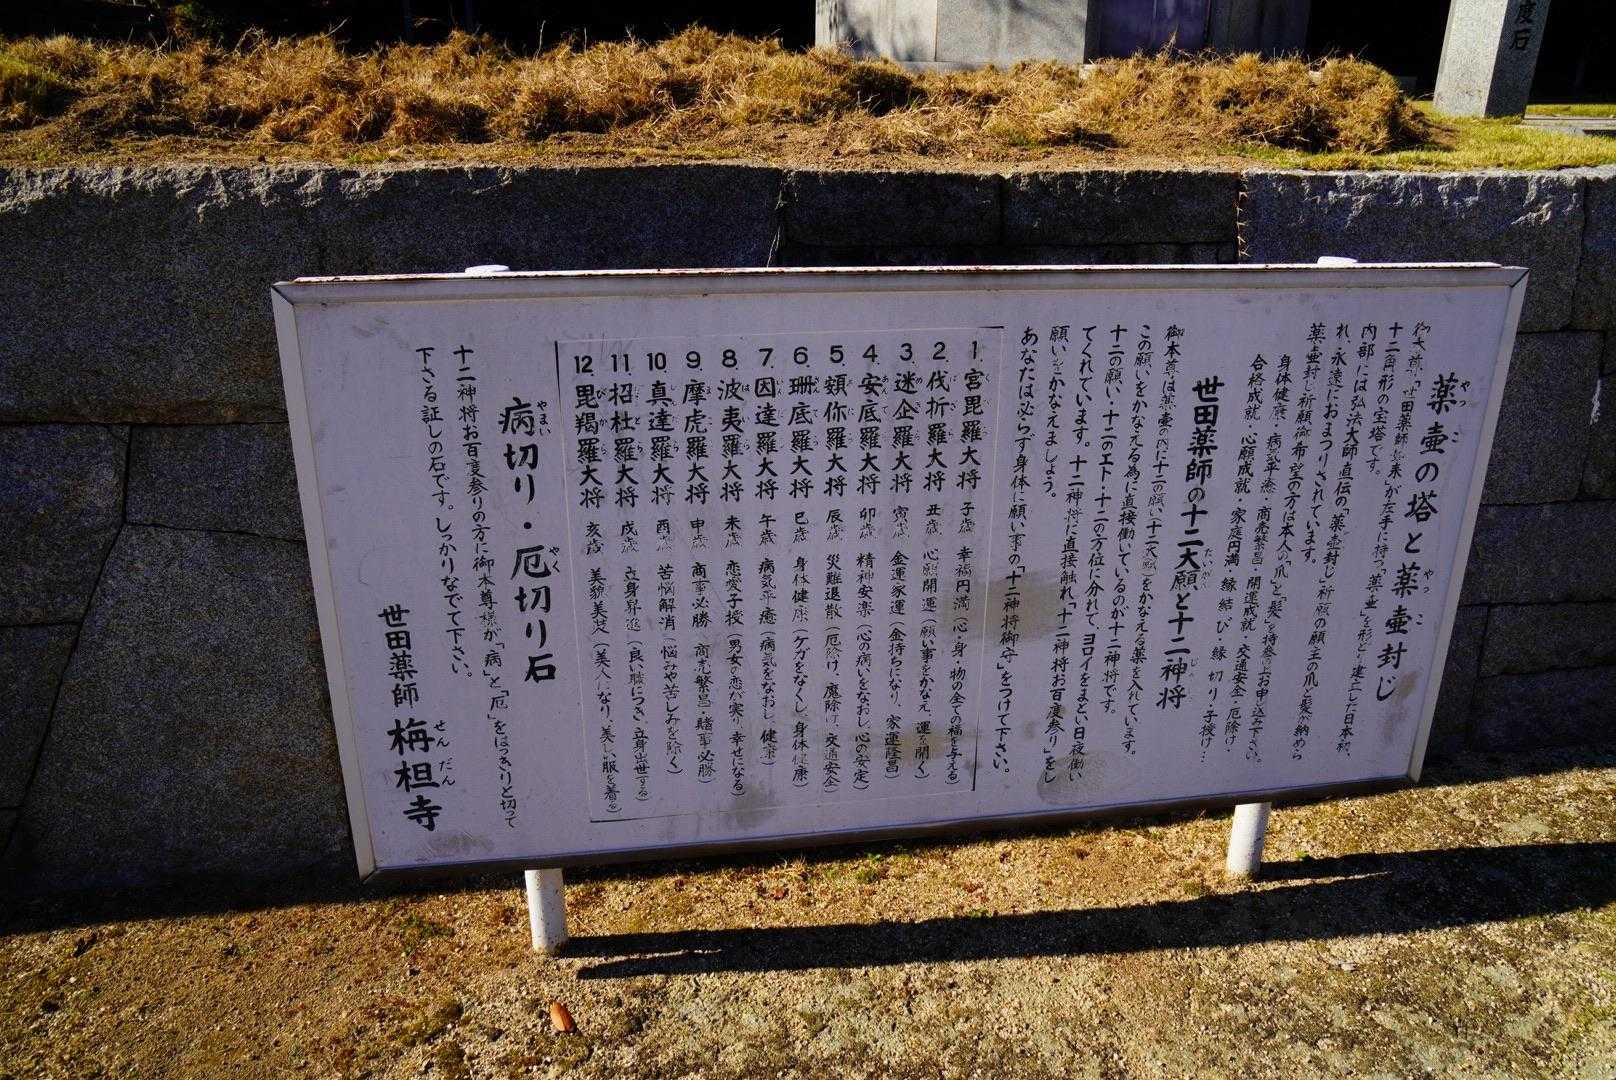 度石
薬壷の塔と薬壷封じ
やっこ やっこ
「世田薬師如来」が左手に持つ「薬壷」を形どり建立した日本初、
十二角形の宝塔です。
内部には弘法大師直伝の「薬壷封じ」祈願の願主の爪と髪が納めら
れ、永遠におまつりされています。
薬壷封じ祈願御希望の方は本人の「爪」と「髪」を持参の上お申し込み下さい。
身体健康・病気平癒・商売繁昌・開運成就・交通安全・厄除け・
合格成就・心願成就・家庭円満・縁結び・縁切り・子授け…
世田薬師の十二大願と十二神将
たいがん
御本尊は薬壷の内に十二の願い「十二大願」をかなえる薬を入れています。
この願いをかなえる為に直接働いているのが十二神将です。
十二の願い・十二のエト・十二の方位に分れて、ヨロイをまとい日夜働い
てくれています。十二神将に直接触れ「十二神将お百度参り」をし
願いをかなえましょう。
あなたは必らず身体に願い事の「十二神将御守」をつけて下さい。
1. 宮毘羅大将 子歳 幸福円満(心・身・物の全ての福を与える)
2. 伐折羅大将 丑歳 心願開運(願い事をかなえ、運を開く)
3. 迷企羅大将 寅歳 金運家運(金持ちになり、家運隆昌)
4. 安底羅大将 卯歳 精神安楽(心の病いをなおし、心の安定)
5. 頞你羅大将 辰歳 災難退散(厄除け、魔除け、交通安全)
6. 珊底羅大将 巳歳 身体健康(ケガをなくし、身体健康)
7. 因達羅大将 午歳 病気平癒(病気をなおし、健康)
8. 波夷羅大将 未歳 恋愛子授(男女の恋が実り、幸せになる)
9. 摩虎羅大将 申歳 商事必勝(商売繁昌・賭事必勝)
10. 真達羅大将 酉歳 苦悩解消(悩みや苦しみを除く)
11. 招杜羅大将 戌歳 立身昇進(良い職につき、立身出世する)
12 毘羯羅大将 亥歳 美貌美装(美人になり、美しい服を着る)
病切り・厄切り石
やまい やく
十二神将お百度参りの方に御本尊様が「病」と「厄」をはっきりと切って
下さる証しの石です。しっかりなでて下さい。
世田薬師 栴檀寺
せんだん